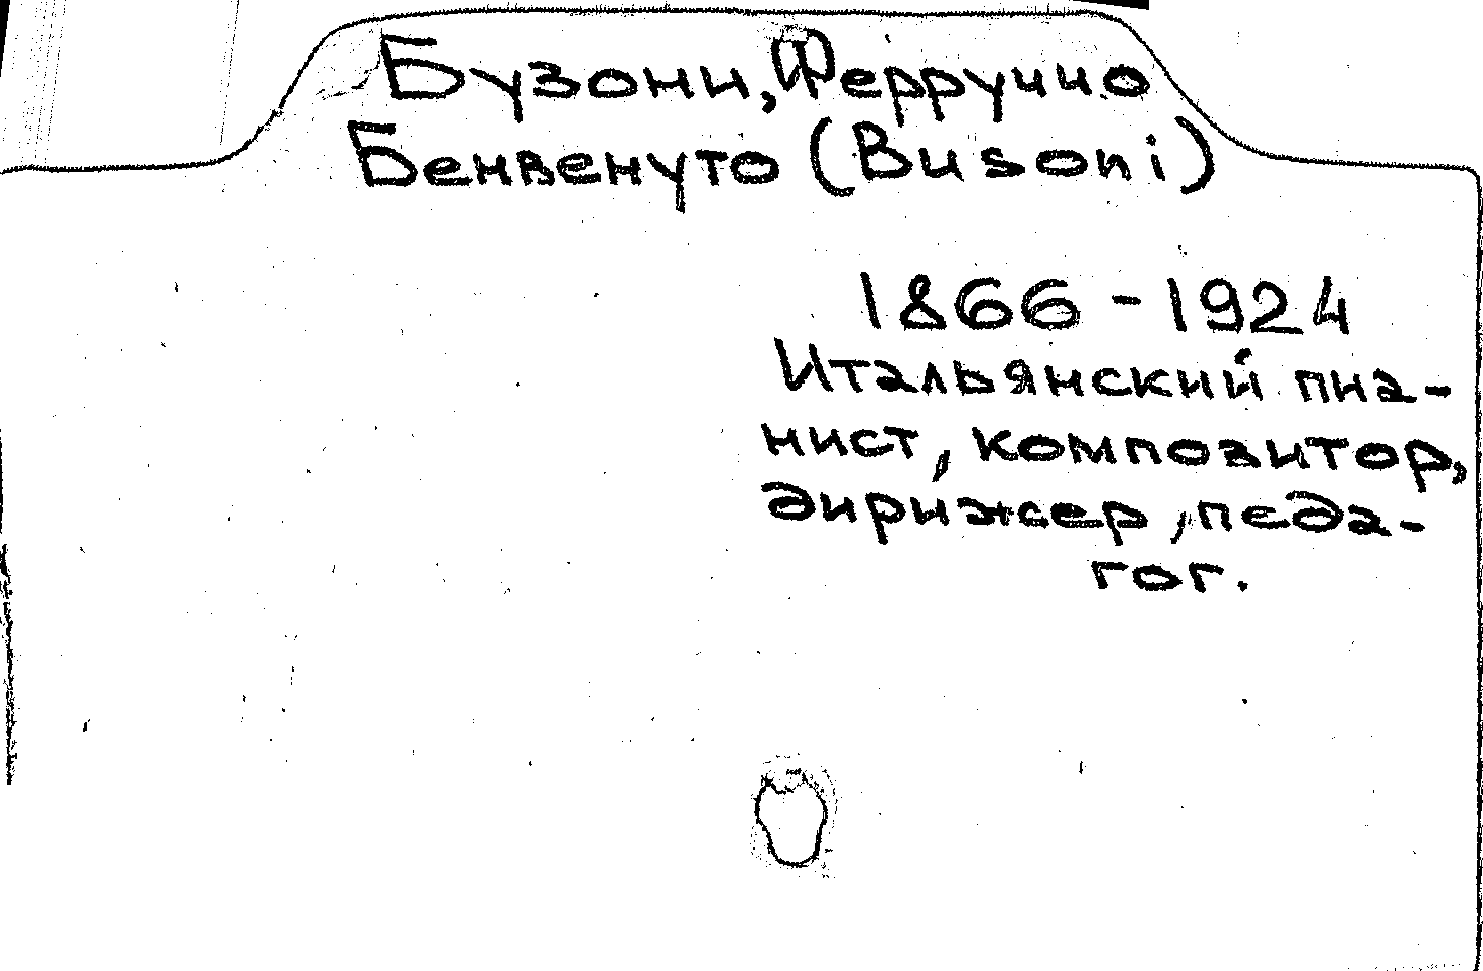 Бузони, Ферруччо
Бенвенуто (Busoni)
1866-1924
Итальянский пиа-
нист, композитор,
дирижер, педа-
гог.